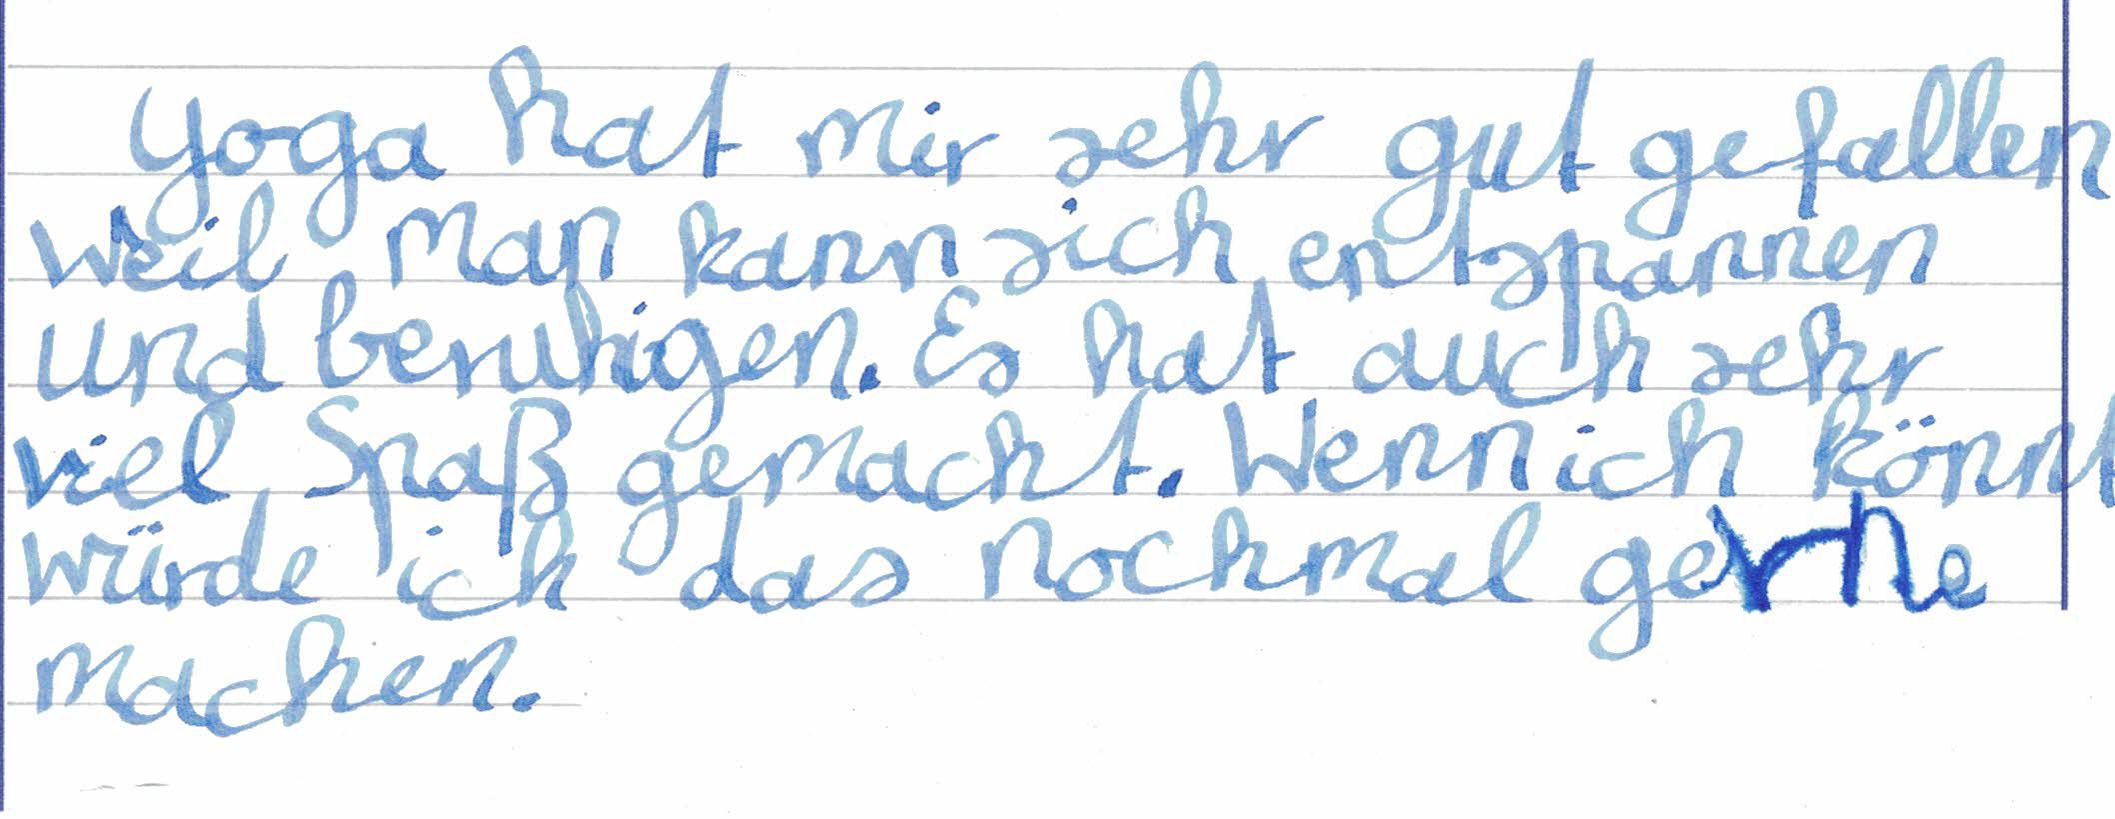 Yoga hat mir sehr gut gefallen
weil man kann sich entspannen
und beruhigen. Es hat auch sehr
viel Spaß gemacht. Wenn ich könnt
würde ich das nochmal gerne
machen.